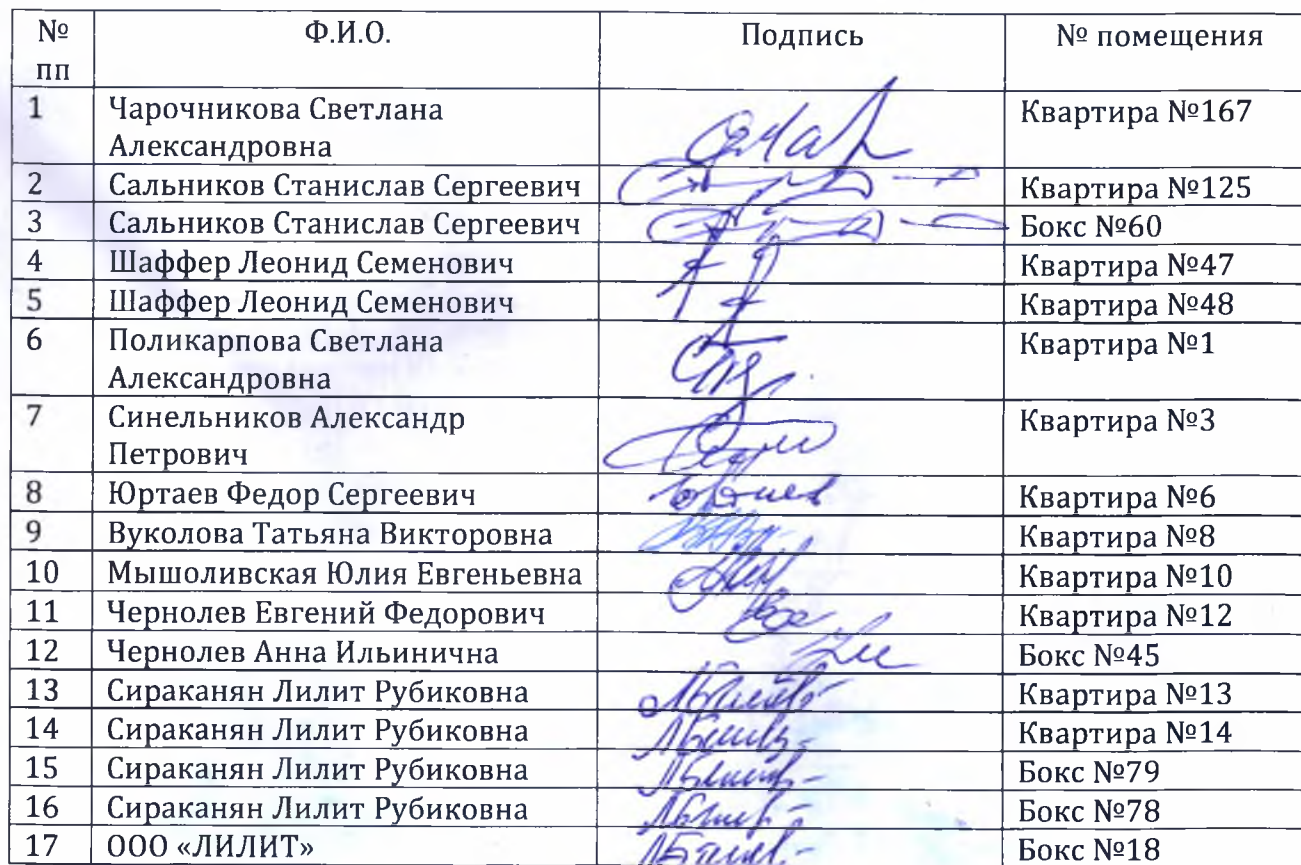 № Ф.И.О. Подпись № помещения
пп
1 Чарочникова Светлана Квартира №167
Александровна
2 Сальников Станислав Сергеевич Квартира №125
3 Сальников Станислав Сергеевич Бокс №60
4 Шаффер Леонид Семенович Квартира №47
5 Шаффер Леонид Семенович Квартира №48
6 Поликарпова Светлана Квартира №1
Александровна
7 Синельников Александр Квартира №3
Петрович
8 Юртаев Федор Сергеевич Квартира №6
9 Вуколова Татьяна Викторовна Квартира №8
10 Мышоливская Юлия Евгеньевна Квартира №10
11 Чернолев Евгений Федорович Квартира №12
12 Чернолев Анна Ильинична Бокс №45
13 Сираканян Лилит Рубиковна Квартира №13
14 Сираканян Лилит Рубиковна Квартира №14
15 Сираканян Лилит Рубиковна Бокс №79
16 Сираканян Лилит Рубиковна Бокс №78
17 ООО «ЛИЛИТ» Бокс №18